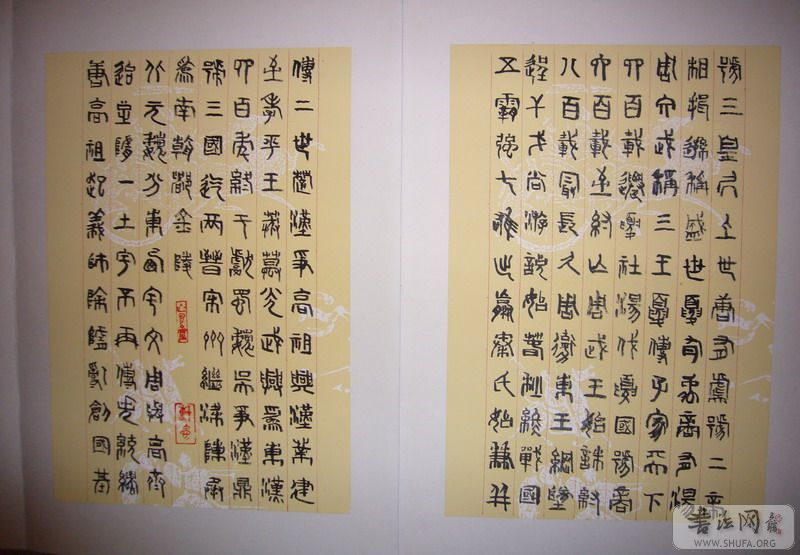 號三皇居上世唐有虞號二帝
相揖遜稱盛世夏有禹商有湯
周文武稱三王夏傳子家天下
四百載遷夏社湯伐夏國號商
六百載至紂亡周武王始誅紂
八百載最長久周轍東王綱墜
逞干戈尚游說始春秋終戰國
五霸強七雄出嬴秦氏始兼并
傳二世楚漢爭高祖興漢業建
至孝平王莽篡光武興為東漢
四百年終于獻蜀魏吳爭漢鼎
號三國迄兩晉宋齊繼梁陳承
為南朝都金陵
北元魏分東西宇文周與高齊
迨至隋一土宇不再傳失統緒
唐高祖起義師除隋亂創國基
书法网
WWW.SHUFA.ORG